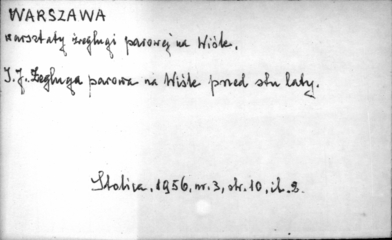 WARSZAWA
warsztaty żeglugi parowej na Wiśle.
I. J. Żegluga parowa na Wiśle przed stu laty.
Stolica, 1956, nr. 3, str. 10, il. 2.